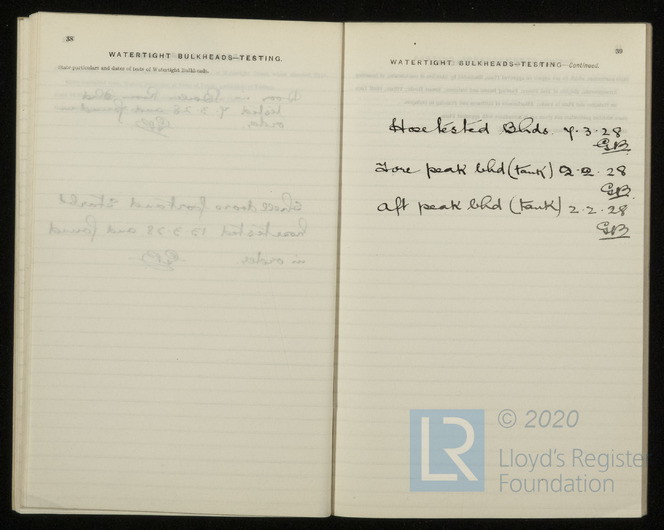 38
WATERTIGHT BULKHEADS—TESTING.
State particulars and dates of tests of Watertight Bulkheads.
39
WATERTIGHT BULKHEADS—TESTING—Continued.
Hose tested Blhds. 7.3.28
GB
Fore peak blhd (tank) 2.2.28
GB
Aft peak blhd (tank) 2.2.28
GB
LR
© 2020
Lloyd's Register
Foundation